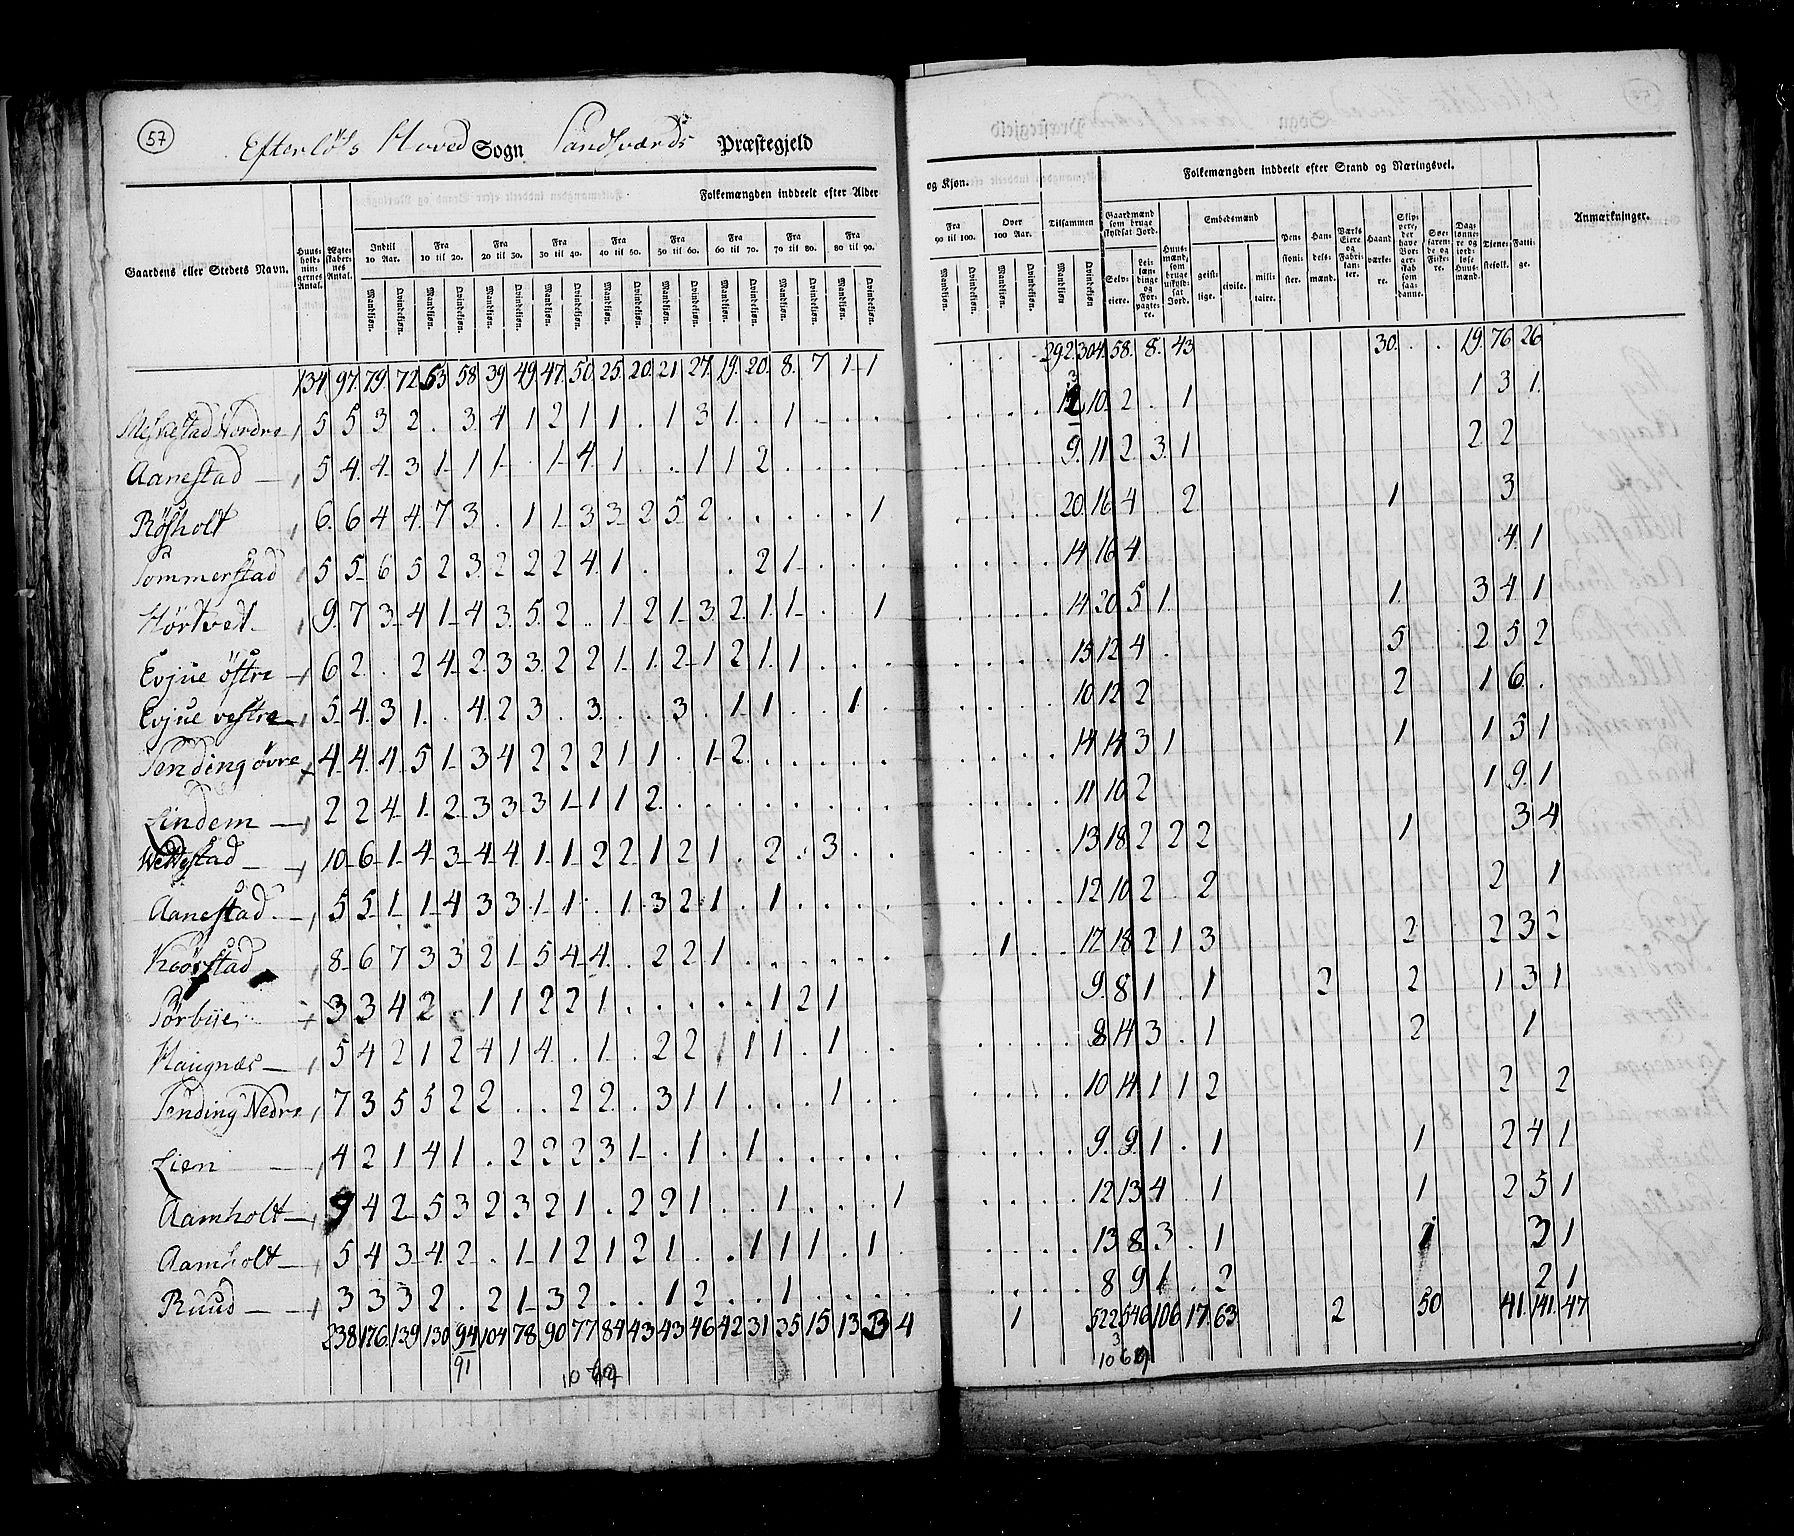 57
Efterløts Hoved Sogn Sandsværds Præstegjeld
Gaardens eller Stedets Navn.
Huusholdningernes Antal.
Ægteskabernes Antal.
Folkemængden inddeelt efter Alder
Indtil 10 Aar. Fra 10 til 20. Fra 20 til 30. Fra 30 til 40. Fra 40 til 50. Fra 50 til 60. Fra 60 til 70. Fra 70 til 80. Fra 80 til 90.
Mandkjøn. Qvindekjøn. Mandkjøn. Qvindekjøn. Mandkjøn. Qvindekjøn. Mandkjøn. Qvindekjøn. Mandkjøn. Qvindekjøn. Mandkjøn. Qvindekjøn. Mandkjøn. Qvindekjøn. Mandkjøn. Qvindekjøn. Mandkjøn. Qvindekjøn.
134 97. 79. 72. 53 58 39 49. 47. 50. 25. 20. 21 27. 19. 20. 8. 7 1 1
Nordre 5 5 3 2 . 3 4 1 2 1 1 . 1 3 1 . 1
Aanestad 5 4 4 3 1 1 1 . 1 4 1 . . 1 1 2
Røsholt 6 6 4 4 7 3 . 1 1 3 3 2 5 2 . . . . . 1
Sommerstad 5 5 6 5 2 3 2 2 2 4 1 . . . . 2 1
Hørtvet 9 7 3 4 1 4 3 5 2 . 1 2 1 3 2 1 1 . . 1
Evjue østre 6 2 . 2 4 2 3 3 2 2 1 1 2 1 2 1 1
Evjue vestre 5 4 3 1 . 4 2 3 . 3 . . 3 . 1 1 . . 1
Tending øvre 4 4 4 5 1 3 4 2 2 2 1 1 . 1 2
Lindem 2 2 4 1 2 3 3 3 1 1 1 2
Wettestad 10 6 1 4 3 4 4 1 1 2 2 1 2 1 . 2 . 3
Aanestad 5 5 1 1 4 3 3 1 1 . 1 3 2 1 . 1
8 6 7 3 3 2 1 5 4 4 . 2 2 1
3 3 4 2 . 1 1 2 2 1 . . . . . 1 2 1
Haugnæs 5 4 2 1 2 4 1 4 . 1 . 2 2 1 1 1 . 1
Tending Nedre 7 3 5 5 2 2 . . 2 2 . 3 1 1 . . . 1
Lien 4 2 1 4 1 . 2 2 2 3 1 . 1 . 1
Aamholt 9 4 2 5 3 2 3 2 1 . 2 2 1 . . 1 . . . 1
Aamholt 5 4 3 4 2 . 1 1 2 1 2 1 . . 1 1 1 . 1
Ruud 3 3 3 2 . 2 1 3 2 . . 1 2 . . 1
238 176. 139 130 94 104 78. 90 77 84 43 43 46 42 31 35 15 13 3 4
91
1069
og Kjøn.
Fra 90 til 100. Over 100 Aar. Tilsammen
Mandkjøn. Qvindekjøn. Mandkjøn. Qvindekjøn. Mandkjøn Qvindekjøn
Folkemængden inddeelt efter Stand og Næringsvei.
Gaardmænd som bruge skyldsat Jord.
Selveiere. Leilændinge og Forpagtere.
Huusmænd, som bruge uskyldsat Jord.
Embedsmænd
geistlige. civile. militaire.
Pensionister.
Handelsmænd.
Værks Eiere og Fabrikanter.
Haandværkere.
Skippere, der have Borgerskab som saadanne.
Søefarende og Fiskere.
Daglønnere og jordløse Huusmænd.
Tjenestefolk.
Fattige.
Anmærkninger.
292. 304. 58. 8. 43 30. 19. 76 26
10. 2 . 1 1 3 1.
9. 11 2 3. 1 2 2
20. 16 4 . 2 1 3
14 16 4 4. 1
14 20 5 1. 1. 3 4 1
15 12 4 . 5 2 5 2
10 12 2 2 1 6
14 14 3 1 1 1 5 1
11 10 2 1 9. 1
13 18 2 2 2 1 3 4
12 10 2 . 2 2 1
1 17 18 2 1 3 2 2 3 2
9. 8 1 . 1 2 2 1 3 1
8 14 3 . 1 2 1
10 14 1 1 2 2 2
9. 9. 1 . 1 1 2 4 1
12 13 4 . 1 1 2 5 1
13 8 3 . 1 1 3 1
8 9 1 . 2 2 1
1 522 546 106 17. 63 2 50 41. 141. 47
3
1069